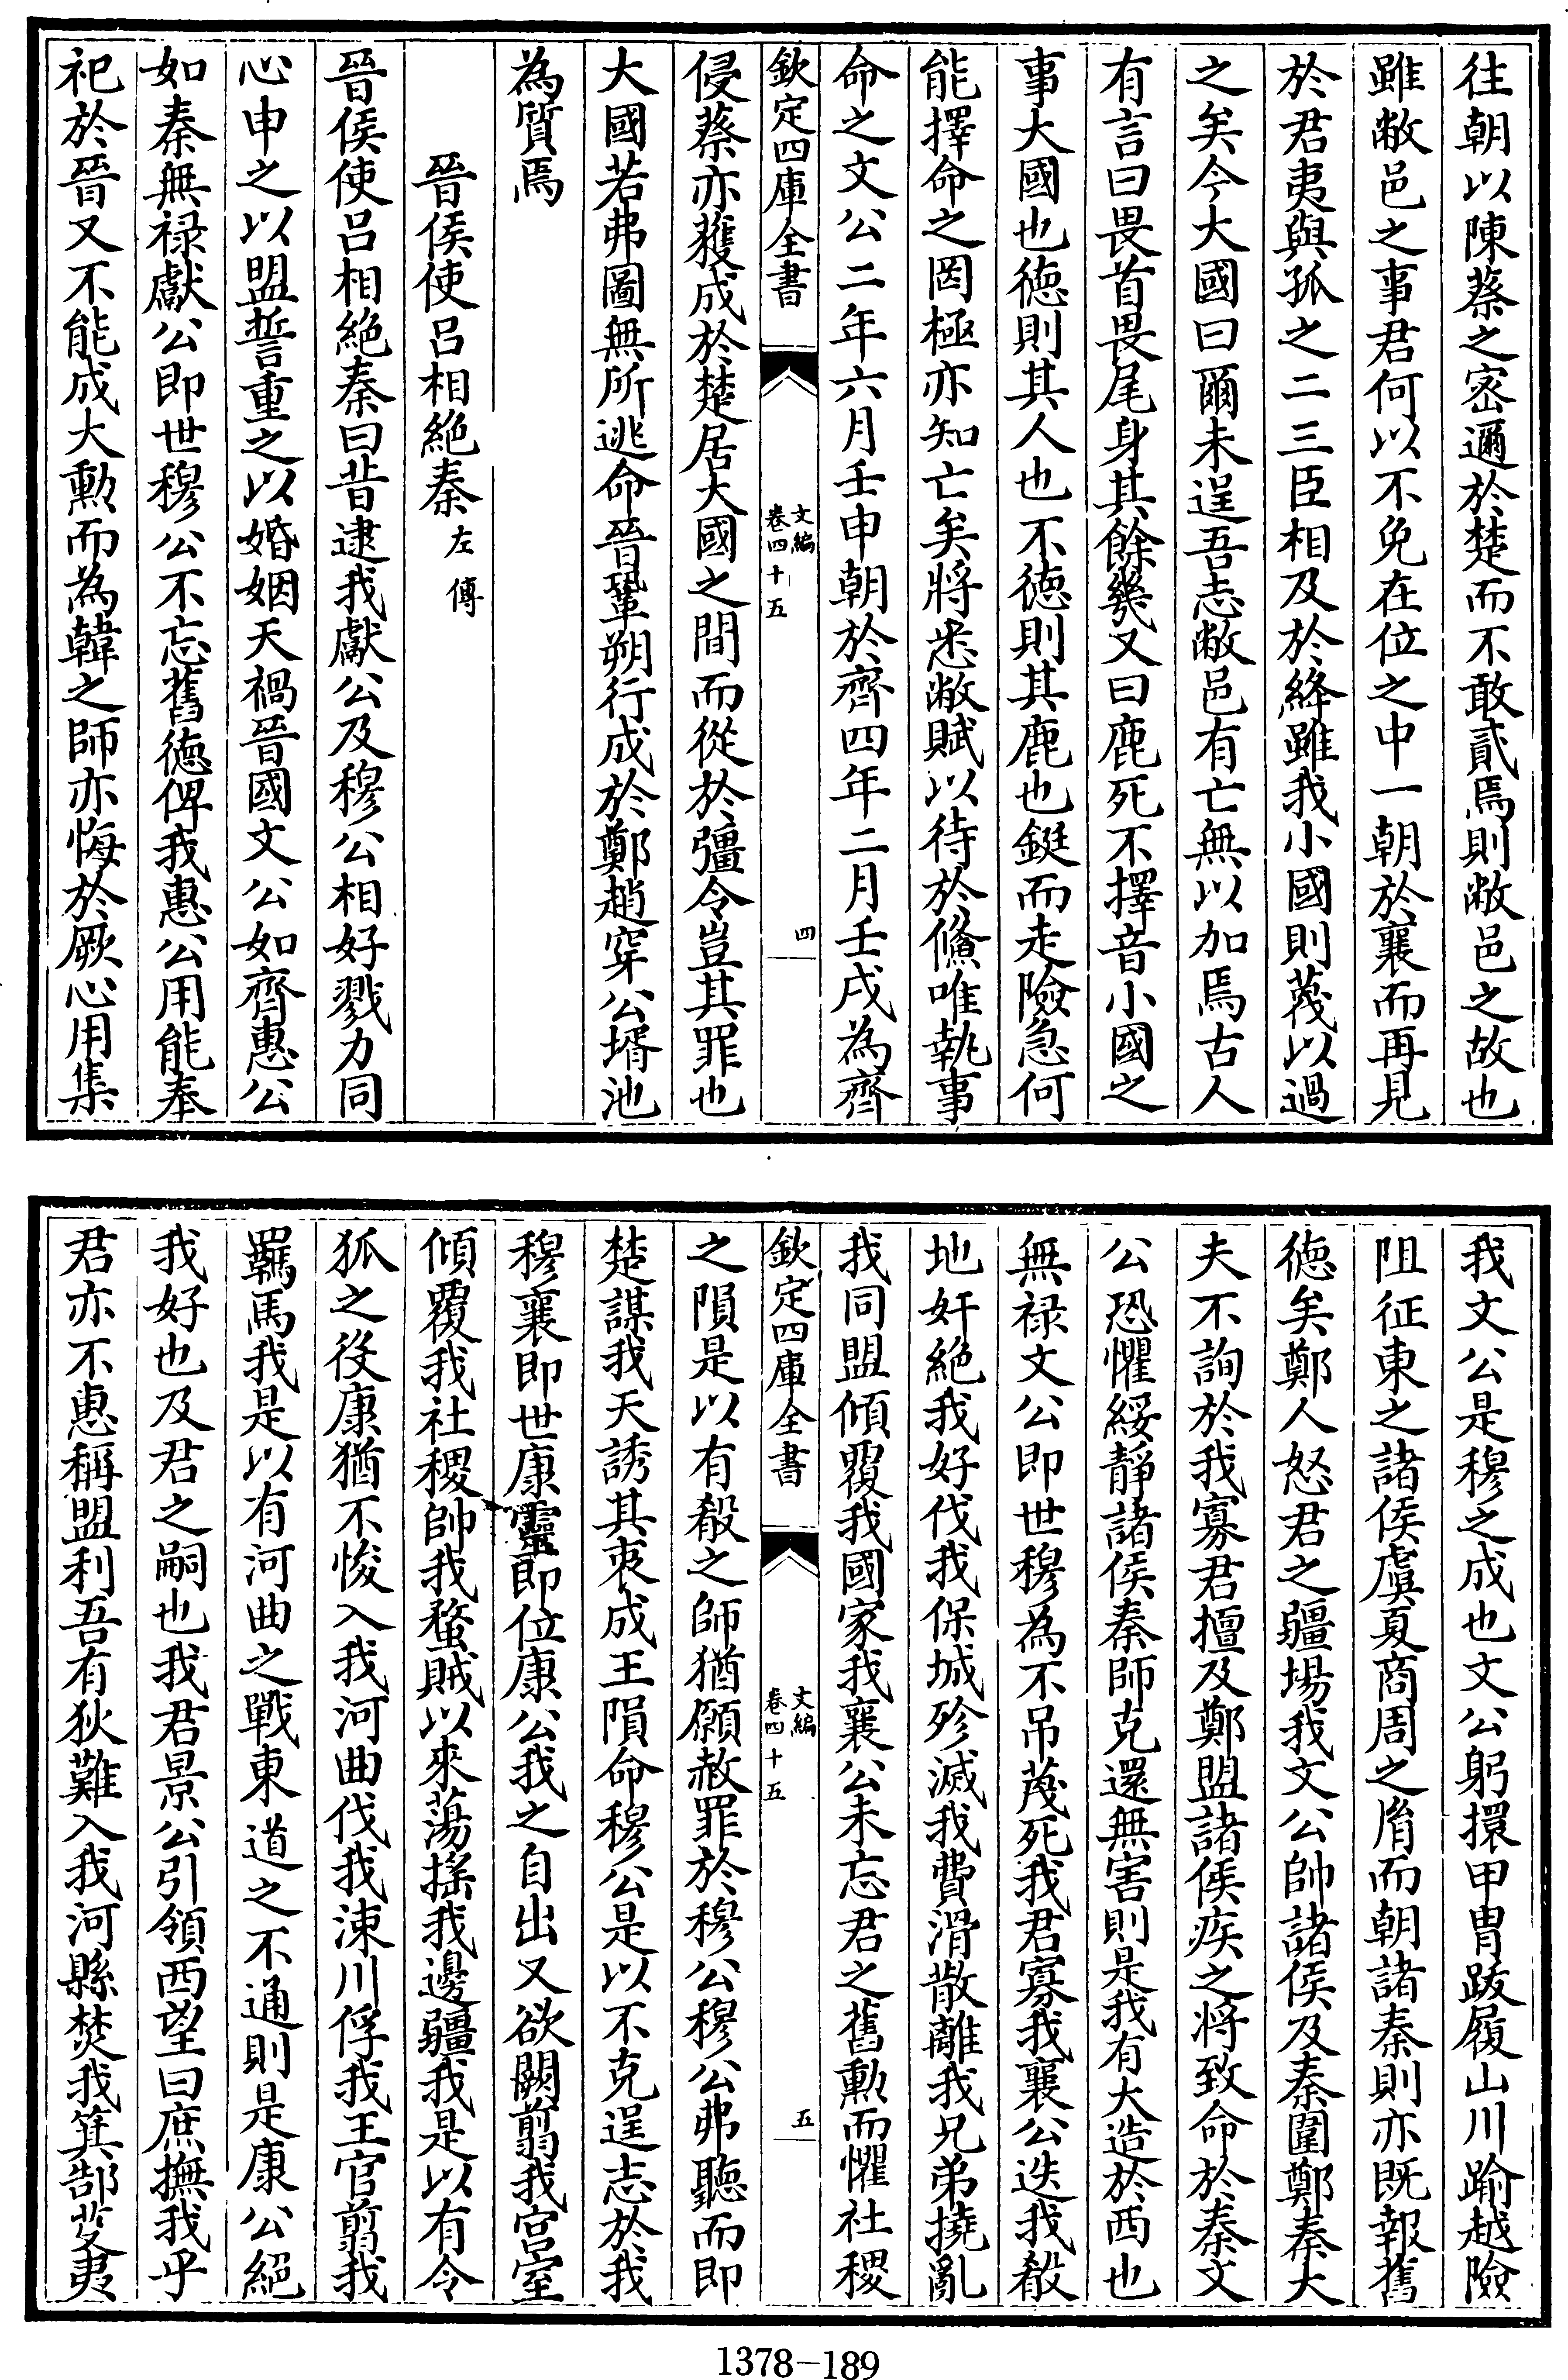 往朝以陳蔡之宻邇於楚而不敢貳焉則敝邑之故也
雖敝邑之事君何以不免在位之中一朝於襄而再見
於君夷與孤之二三臣相及於絳雖我小國則蔑以過
之矣今大國曰爾未逞吾志敝邑有亡無以加焉古人
有言曰畏首畏尾身其餘幾又曰鹿死不擇音小國之
事大國也徳則其人也不徳則其鹿也鋌而走險急何
能擇命之罔極亦知亡矣將悉敝賦以待於鯈唯執事
命之文公二年六月壬申朝於齊四年二月壬戌為齊
欽定四庫全書
文編
卷四十五
四
侵蔡亦獲成於楚居大國之間而從於彊令豈其罪也
大國若弗圖無所逃命晉鞏朔行成於鄭趙穿公壻池
為質焉
晉侯使呂相絶秦左傳
晉侯使呂相絶秦曰昔逮我獻公及穆公相好戮力同
心申之以盟誓重之以婚姻天禍晉國文公如齊惠公
如秦無禄獻公即世穆公不忘舊徳俾我惠公用能奉
祀於晉又不能成大勲而為韓之師亦悔於厥心用集
我文公是穆之成也文公躬擐甲胄跋履山川踰越險
阻征東之諸侯虞夏商周之胤而朝諸秦則亦既報舊
徳矣鄭人怒君之疆場我文公帥諸侯及秦圍鄭秦大
夫不詢於我寡君擅及鄭盟諸侯疾之將致命於秦文
公恐懼綏靜諸侯秦師克還無害則是我有大造於西也
無禄文公即世穆為不弔蔑死我君寡我襄公迭我殽
地奸絶我好伐我保城殄滅我費滑散離我兄弟撓亂
我同盟傾覆我國家我襄公未忘君之舊勲而懼社稷
欽定四庫全書
文編
卷四十五
五
之隕是以有殽之師猶願赦罪於穆公穆公弗聽而即
楚謀我天誘其衷成王隕命穆公是以不克逞志於我
穆襄即世康靈即位康公我之自出又欲闕翦我宫室
傾覆我社稷帥我蝥賊以來蕩摇我邊疆我是以有令
狐之役康猶不悛入我河曲伐我涑川俘我王官翦我
羈馬我是以有河曲之戰東道之不通則是康公絶
我好也及君之嗣也我君景公引領西望曰庶撫我乎
君亦不惠稱盟利吾有狄難入我河縣焚我箕郜芟夷
1378-189